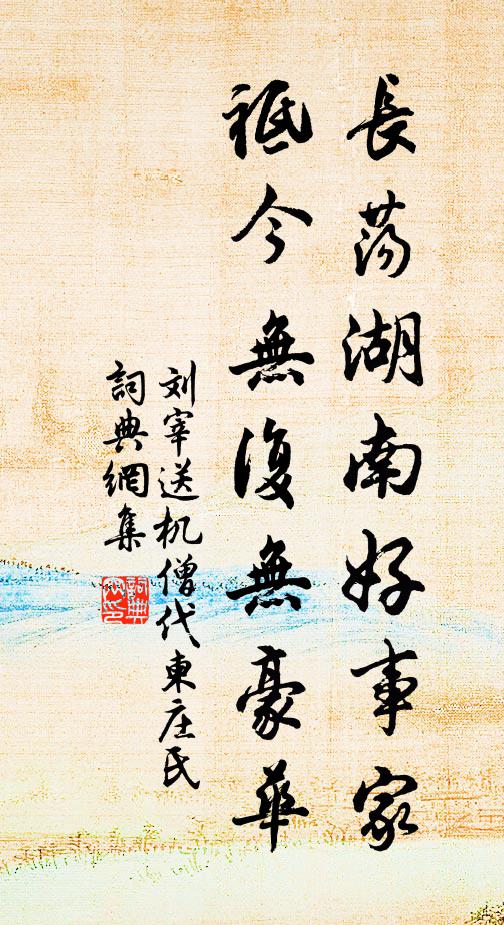 長蕩湖南好事家
祗今無復無豪華
刘宰送机僧代東庄氏
詞典網集